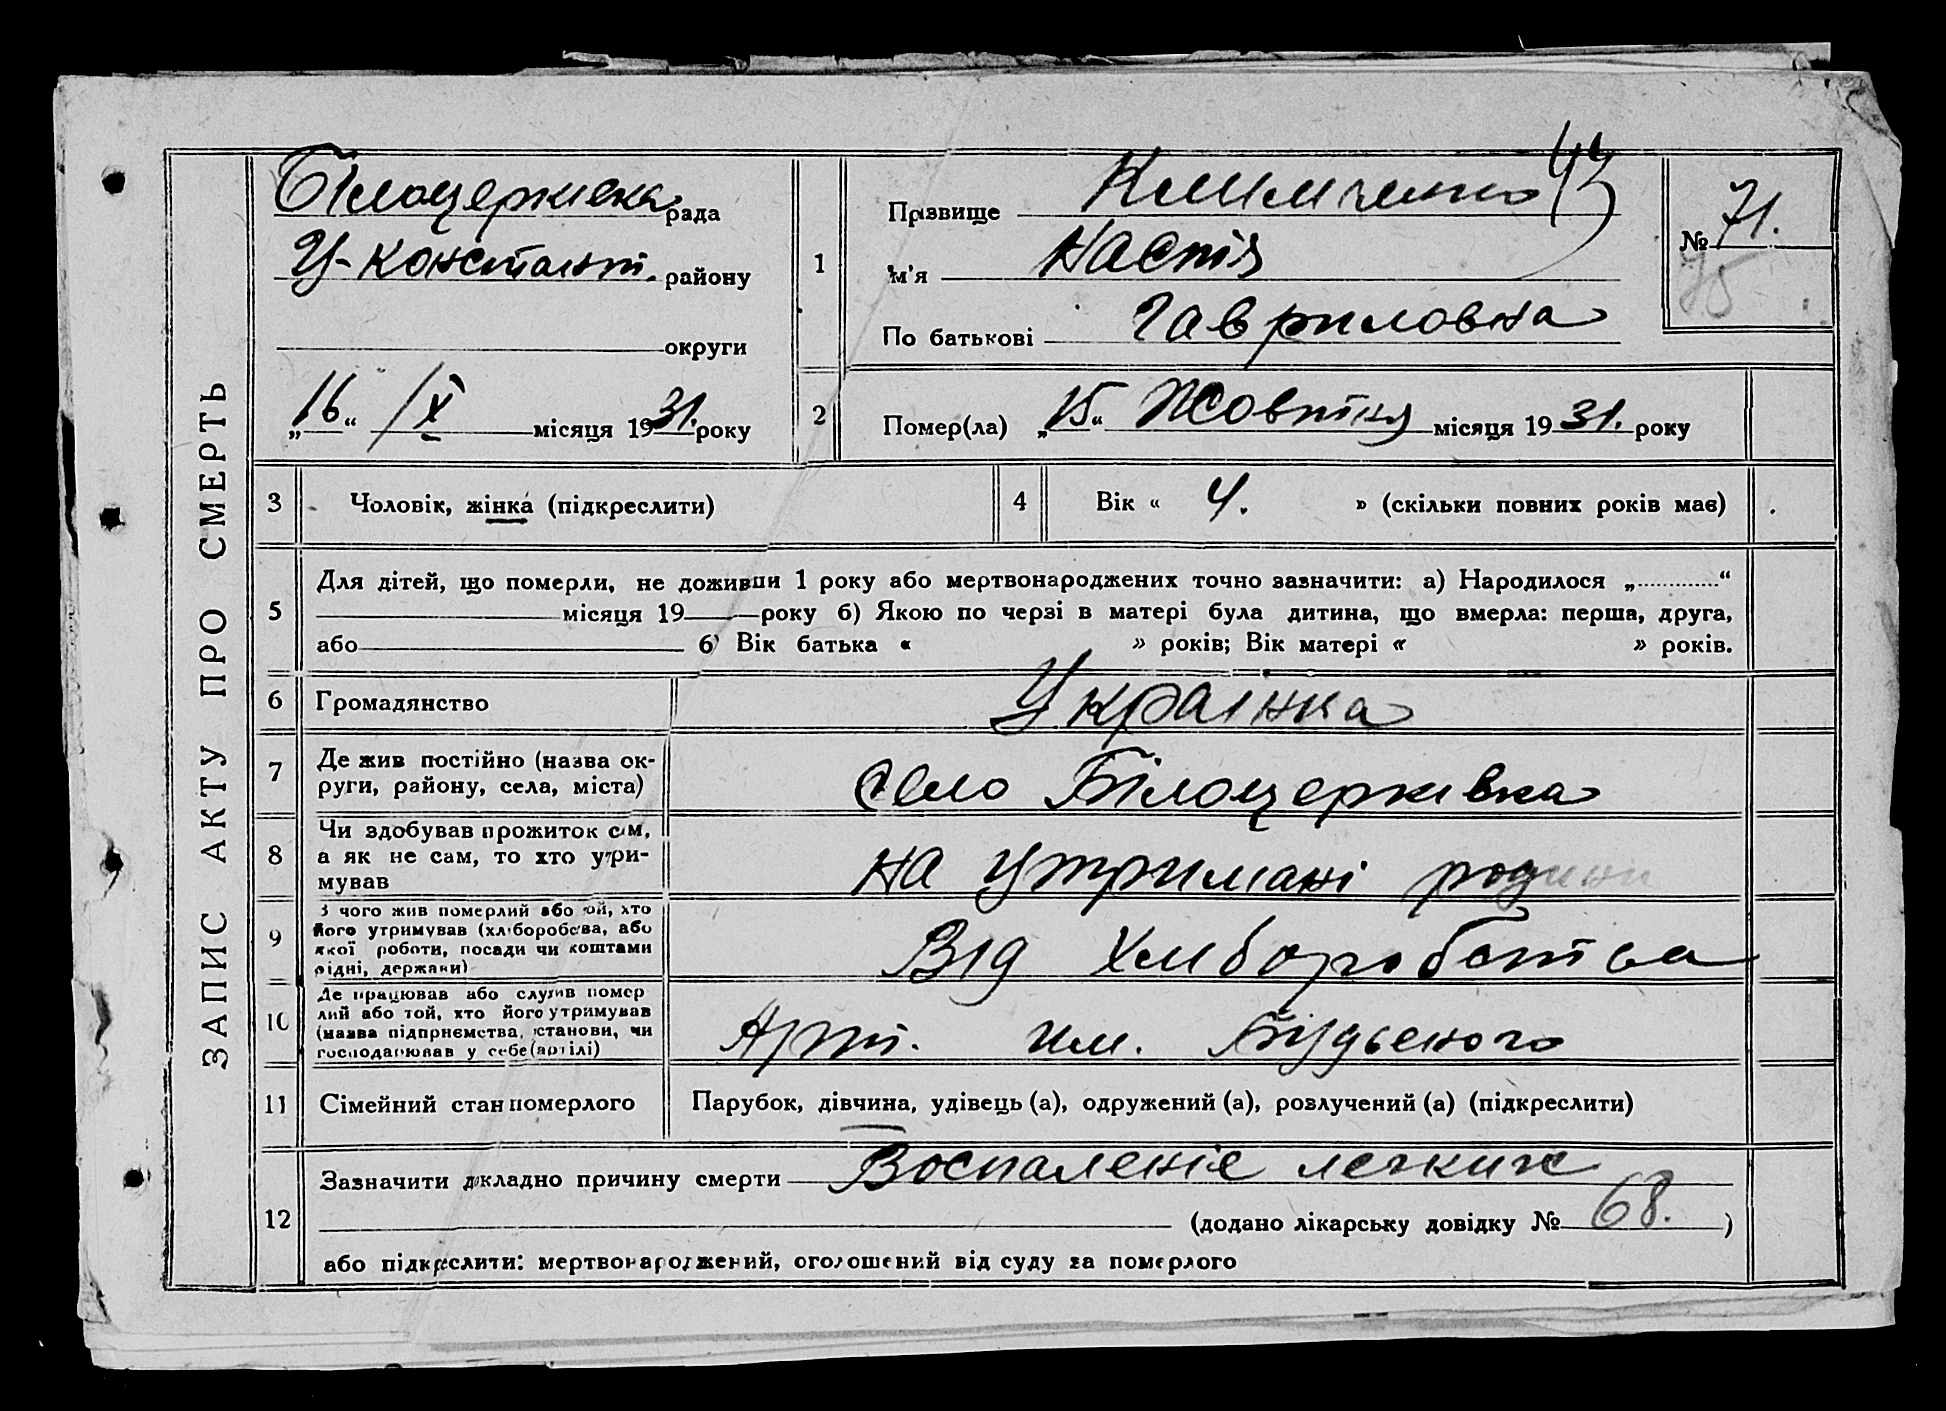 ЗАПИС АКТУ ПРО СМЕРТЬ
Білоцерківка рада
Ц-Констант. району
округи
„16“ /X місяця 1931. року
1
Прізвище Климченко 43
Ім'я Настія
По батькові Гавриловна
№ 71.
75
2
Помер(ла) „15“ Жовтня місяця 1931. року
3 Чоловік, жінка (підкреслити)
4 Вік « 4. » (скільки повних років має)
5
Для дітей, що померли, не доживши 1 року або мертвонароджених точно зазначити: а) Народилося „ “
місяця 19 року б) Якою по черзі в матері була дитина, що вмерла: перша, друга,
або б) Вік батька « » років; Вік матері « » років.
6 Громадянство Украінка
7 Де жив постійно (назва ок-
руги, району, села, міста) село Білоцерківка
8 Чи здобував прожиток сам,
а як не сам, то хто утри-
мував на утримані родини
9 З чого жив померлий або той, хто
його утримував (хліборобства, або
якої роботи, посади чи коштами
рідні, держави) Від Хліборобства
10 Де працював або служив помер
лий або той, хто його утримував
(назва підприємства, установи, чи
господарював у себе (артілі) Арт. им. Будьеного
11 Сімейний стан померлого Парубок, дівчина, удівець (а), одружений (а), розлучений (а) (підкреслити)
12
Зазначити докладно причину смерти Воспаленіе легких
(додано лікарську довідку № 68. )
або підкреслити: мертвонароджений, оголошений від суду за померлого